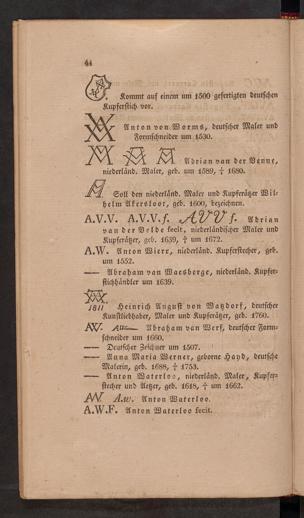 44
Kommt auf einem um 1500 gefertigten deutschen
Kupferstich vor.
Anton von Worms, deutscher Maler und
Formschneider um 1530.
Adrian van der Venne,
niederländ. Maler, geb. um 1589, † 1680.
Soll den niederländ. Maler und Kupferätzer Wil-
helm Akersloot, geb. 1600, bezeichnen.
A.V.V. A.V.V.f. AVVf. Adrian
van der Velde fecit, niederländischer Maler und
Kupferätzer, geb. 1639, † um 1672.
A.W. Anton Wierx, niederländ. Kupferstecher, geb.
um 1552.
— Abraham van Waesberge, niederländ. Kupfer-
stichhändler um 1639.
1811 Heinrich August von Watzdorf, deutscher
Kunstliebhaber, Maler und Kupferätzer, geb. 1760.
AW. Abraham van Werf, deutscher Form-
schneider um 1660.
— Deutscher Zeichner um 1507.
— Anna Maria Werner, geborne Hayd, deutsche
Malerin, geb. 1688, † 1753.
— Anton Waterloo, niederländ. Maler, Kupfer-
stecher und Aetzer, geb. 1618, † um 1662.
AW A.w. Anton Waterloo.
A.W.F. Anton Waterloo fecit.